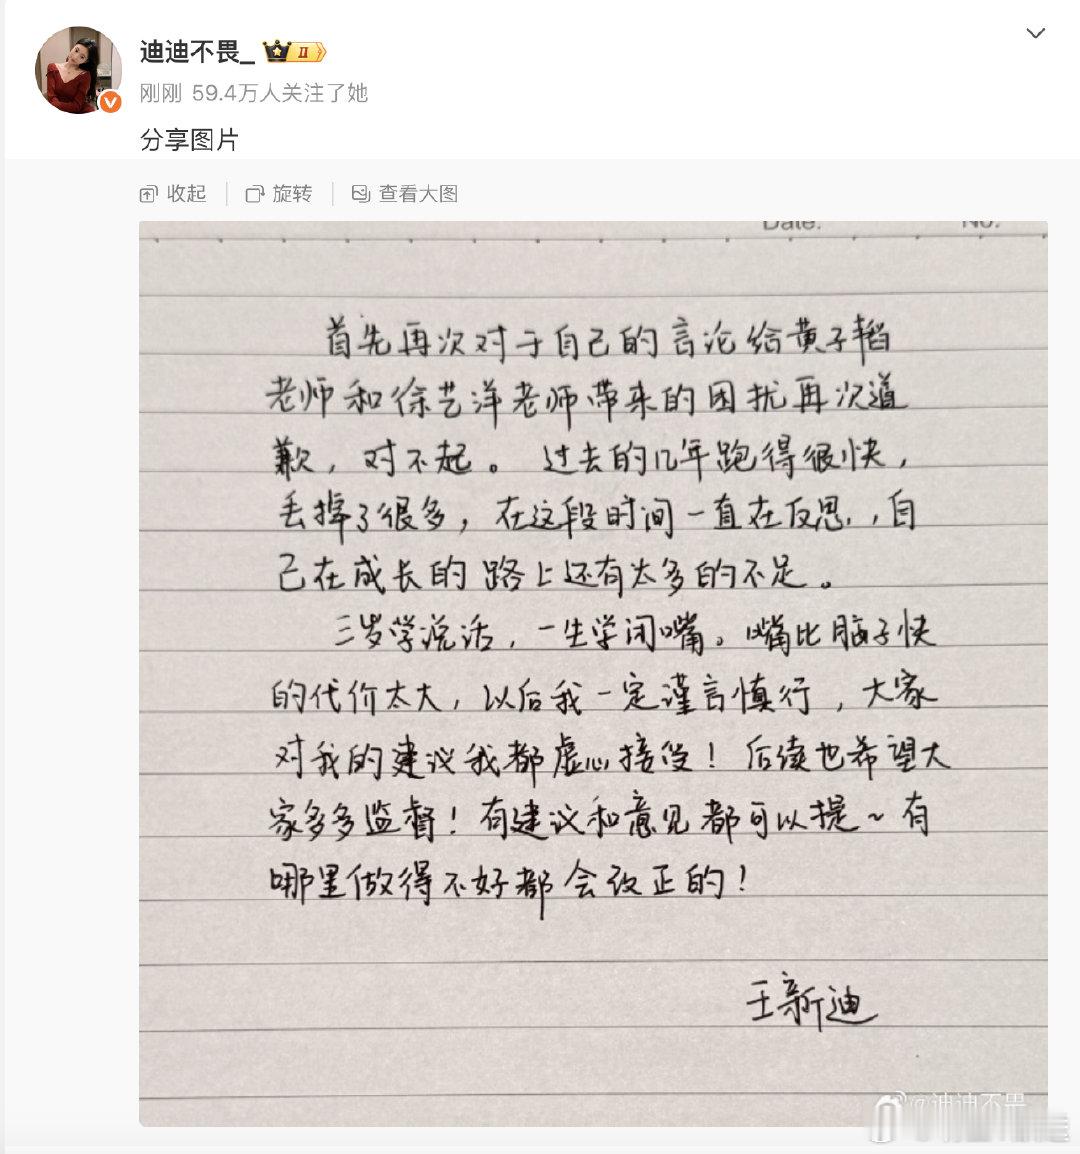 迪迪不畏_ II
刚刚 59.4万人关注了她
分享图片
收起 旋转 查看大图
Date. No.
首先再次对于自己的言论给黄子韬
老师和徐艺洋老师带来的困扰再次道
歉，对不起。过去的几年跑得很快，
丢掉了很多，在这段时间一直在反思，自
己在成长的路上还有太多的不足。
三岁学说话，一生学闭嘴。嘴比脑子快
的代价太大，以后我一定谨言慎行，大家
对我的建议我都虚心接受！后续也希望大
家多多监督！有建议和意见都可以提~有
哪里做得不好都会改正的！
王新迪
@迪迪不畏_